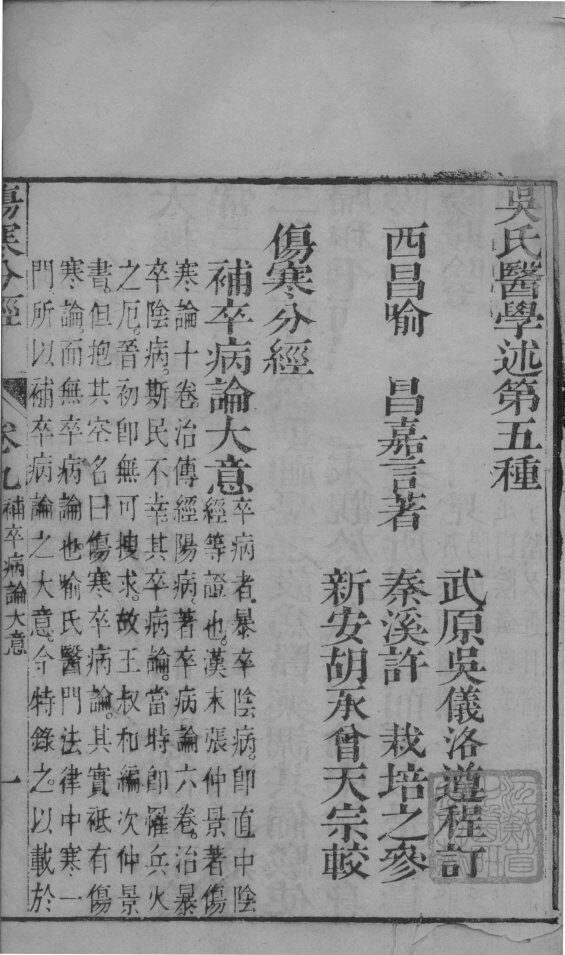 吳氏醫學述第五種
武原吳儀洛遵程訂
西昌喻　昌嘉言著　秦溪許　栽培之參
新安胡永曾天宗較
傷寒分經
補卒病論大意　卒病者暴卒陰病。卽直中陰
經等證也。漢末張仲景著傷
寒論十卷。治傳經陽病。著卒病論六卷。治暴
卒陰病。斯民不幸其卒病論。當時卽罹兵火
之厄。晉初卽無可搜求。故王叔和編次仲景
書。但抱其空名曰傷寒卒病論。其實祗有傷
寒論而無卒病論也喻氏醫門法律中寒一
門所以補卒病論之大意。今特錄之。以載於
傷寒分經　卷九　補卒病論大意　一